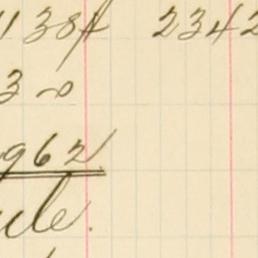 1384 2342
3 ~0
962
ule.